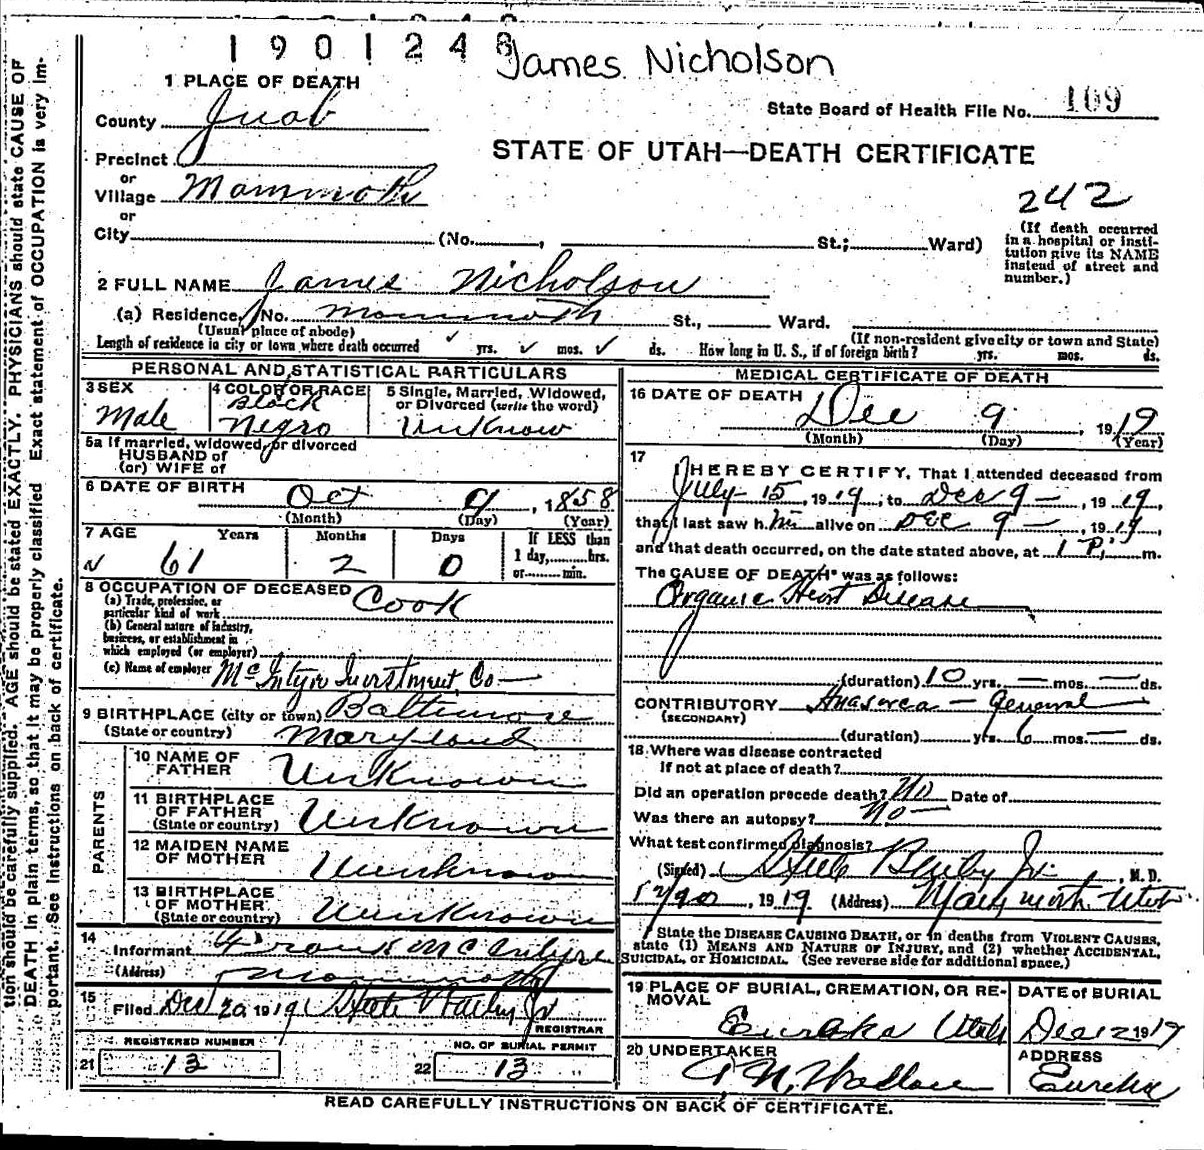 1901248
James Nicholson
1 PLACE OF DEATH
State Board of Health File No. 109
County Juab
STATE OF UTAH—DEATH CERTIFICATE
Precinct
or
Village Mammoth
242
or
City (No. , St.; Ward)
(If death occurred in a hospital or insti-tution give its NAME instead of street and number.)
2 FULL NAME James Nicholson
(a) Residence, No. Mammoth St., Ward.
(Usual place of abode) (If non-resident give city or town and State)
Length of residence in city or town where death occurred yrs. mos. ds. How long in U. S., if of foreign birth? yrs. mos. ds.
PERSONAL AND STATISTICAL PARTICULARS
3 SEX 4 COLOR OR RACE 5 Single, Married, Widowed, or Divorced (write the word)
Male Black Negro Unknow
5a If married, widowed, or divorced
HUSBAND of
(or) WIFE of
6 DATE OF BIRTH Oct 9, 1858
(Month) (Day) (Year)
7 AGE Years Months Days If LESS than
1 day, hrs.
or min.
61 2 0
8 OCCUPATION OF DECEASED Cook
(a) Trade, profession, or
particular kind of work
(b) General nature of industry,
business, or establishment in
which employed (or employer)
(c) Name of employer McIntyre Investment Co
9 BIRTHPLACE (city or town) Baltimore
(State or country) Maryland
PARENTS
10 NAME OF FATHER Unknown
11 BIRTHPLACE OF FATHER (State or country) Unknown
12 MAIDEN NAME OF MOTHER Unknown
13 BIRTHPLACE OF MOTHER (State or country) Unknown
14
Informant Frank McIntyre
(Address) Mammoth
15
Filed Dec 20 1919 Steele Bailey Jr
REGISTRAR
REGISTERED NUMBER NO. OF BURIAL PERMIT
21 13 22 13
MEDICAL CERTIFICATE OF DEATH
16 DATE OF DEATH
Dec 9, 1919
(Month) (Day) (Year)
17
I HEREBY CERTIFY, That I attended deceased from
July 15, 1919, to Dec 9, 1919
that I last saw him alive on Dec 9, 1919,
and that death occurred, on the date stated above, at 1 P. m.
The CAUSE OF DEATH* was as follows:
Organic Heart Disease
(duration) 10 yrs. mos. ds.
CONTRIBUTORY Anasarca - General
(SECONDARY)
(duration) yrs 6 mos. ds.
18 Where was disease contracted
If not at place of death?
Did an operation precede death? No Date of
Was there an autopsy? No
What test confirmed diagnosis?
(Signed) Steele Bailey Jr, M. D.
, 1919 (Address) Mammoth Utah
*State the DISEASE CAUSING DEATH, or in deaths from VIOLENT CAUSES,
state (1) MEANS AND NATURE OF INJURY, and (2) whether ACCIDENTAL,
SUICIDAL, or HOMICIDAL. (See reverse side for additional space.)
19 PLACE OF BURIAL, CREMATION, OR RE-MOVAL
Eureka Utah
DATE of BURIAL
Dec 12 1919
20 UNDERTAKER
Wallace
ADDRESS
Eureka
READ CAREFULLY INSTRUCTIONS ON BACK OF CERTIFICATE.
tion should be carefully supplied. AGE should be stated EXACTLY. PHYSICIANS should state CAUSE OF
DEATH in plain terms, so that it may be properly classified Exact statement of OCCUPATION is very im-
portant. See Instructions on back of certificate.